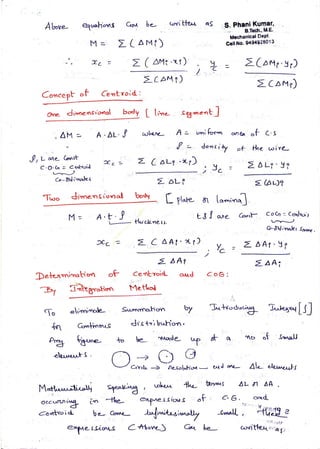 Above equations can be written as
S. Phani Kumar,
B.Tech., M.E.
Mechanical Dept
Cell No.
M = Σ(ΔMi)
∴ xc = Σ(ΔMi·xi) / Σ(ΔMi) ; yc = Σ(ΔMi·yi) / Σ(ΔMi)
Concept of Centroid:
One dimensional body [line segment]
ΔM = A·ΔL·ρ where A = uniform area of c.s
ρ = density of the wire
xc = Σ(ΔLi·xi) / ΣΔLi ; yc = ΣΔLi·yi / Σ(ΔL)i
Co-ordinates
Two dimensional body [plate or lamina]
M = A·t·ρ t & ρ are Const
thickness
xc = Σ(ΔAi·xi) / ΣΔAi ; yc = ΣΔAi·yi / ΣΔAi
Determination of Centroid and COG:
By Integration Method
To eliminate Summation by Introducing Integral [∫]
for Continuous distribution.
Any figure to be made up of a no of Small
elements.
Mathematically Speaking, when the terms ΔL or ΔA,
occurring in the expressions of C.G. and
Centroid be Come infinitesimally Small,
expressions (Above) Can be written as: